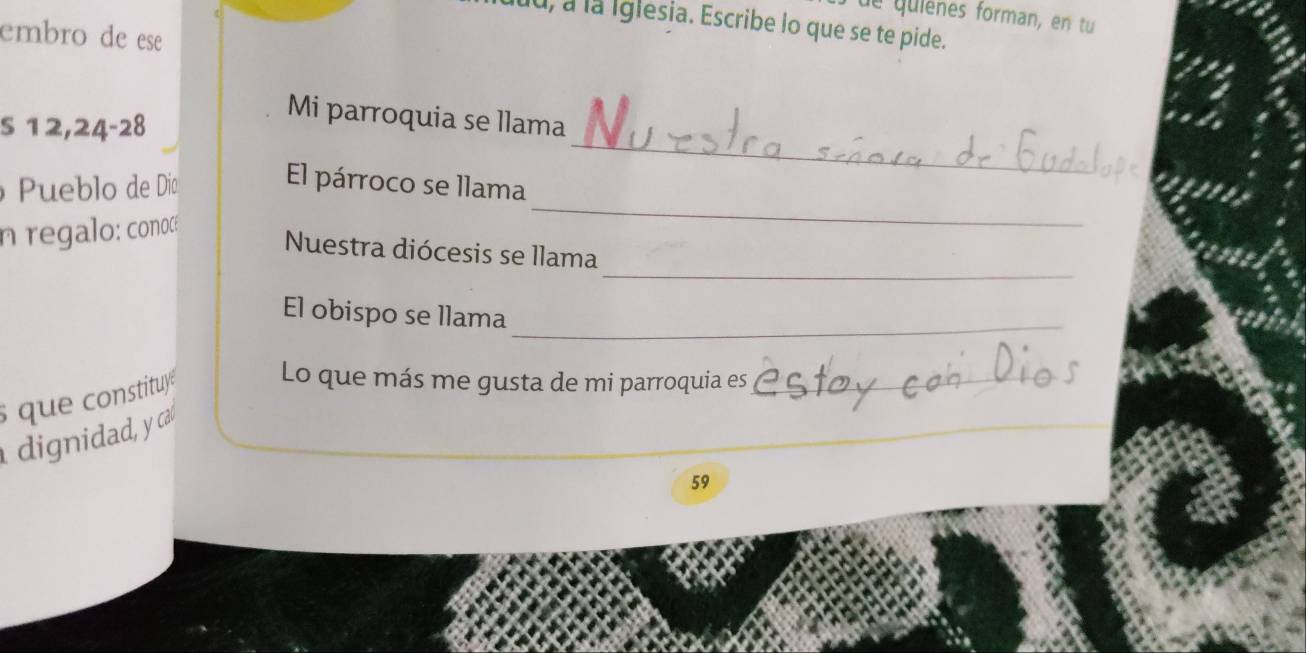 embro de ese
s 12,24-28
Pueblo de Dio
n regalo: conoce
s que constituye
dignidad, y cad
quienes forman, en tu
a la Iglesia. Escribe lo que se te pide.
Mi parroquia se llama Nuestra señora de Gudalope
El párroco se llama
Nuestra diócesis se llama
El obispo se llama
Lo que más me gusta de mi parroquia es estoy con Dios
59